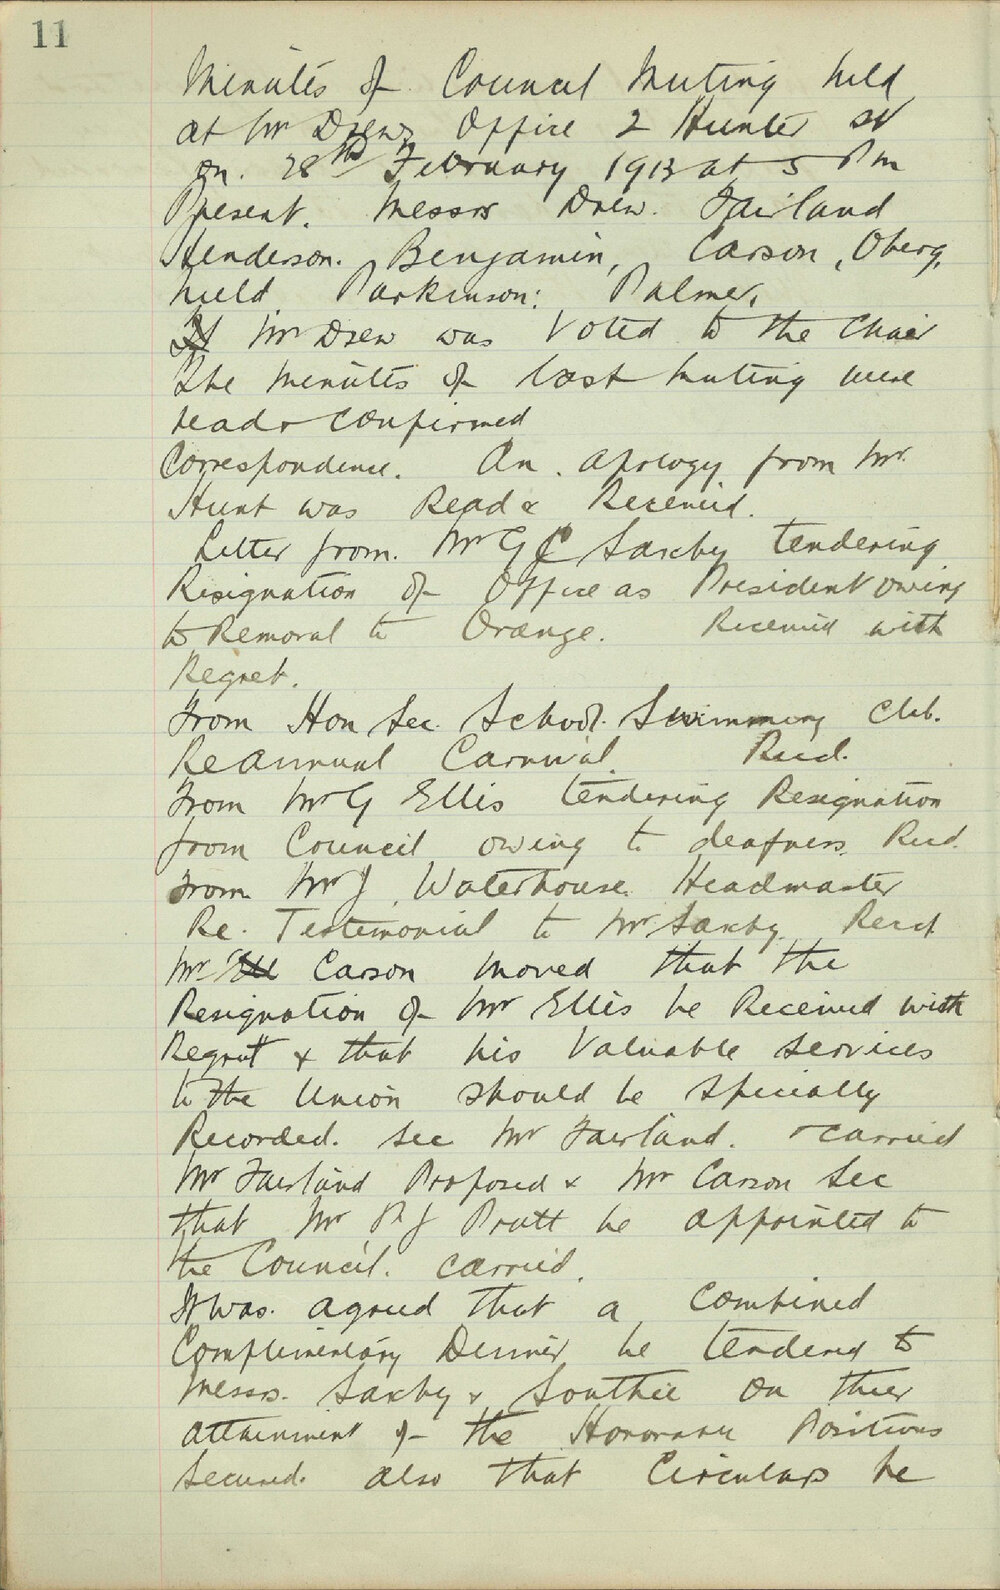 11
Minutes of Council Meeting held
at Mr Drews Office 2 Hunter St
on. 28th February 1913 at 5 Pm
Present. Messrs Drew. Fairland
Henderson. Benjamin, Carson, Oberg,
held Parkinson: Palmer,
Mr Drew was Voted to the Chair
The Minutes of last Meeting were
read & confirmed
Correspondence. An. apology from Mr.
Hunt was Read & Received.
Letter from. Mr G C Saxby tendering
Resignation of Office as President owing
to Removal to Orange. Received with
Regret.
From Hon Sec. School. Swimming Club.
Re Annual Carnival Recd.
From Mr G Ellis tendering Resignation
from Council owing to deafness. Recd.
From Mr J. Waterhouse. Headmaster
Re. Testimonial to Mr Saxby. Recd
Mr Carson moved that the
Resignation of Mr Ellis be Received with
Regret & that his Valuable services
to the Union should be Specially
Recorded. Sec Mr Fairland. carried
Mr Fairland Proposed & Mr Carson Sec
that Mr P J Pratt be appointed to
the Council. carried.
It was. agreed that a combined
Complimentary Dinner be tendered to
Messrs. Saxby & Southee on their
attainment of the Honorary Positions
Secured. also that Circulars be